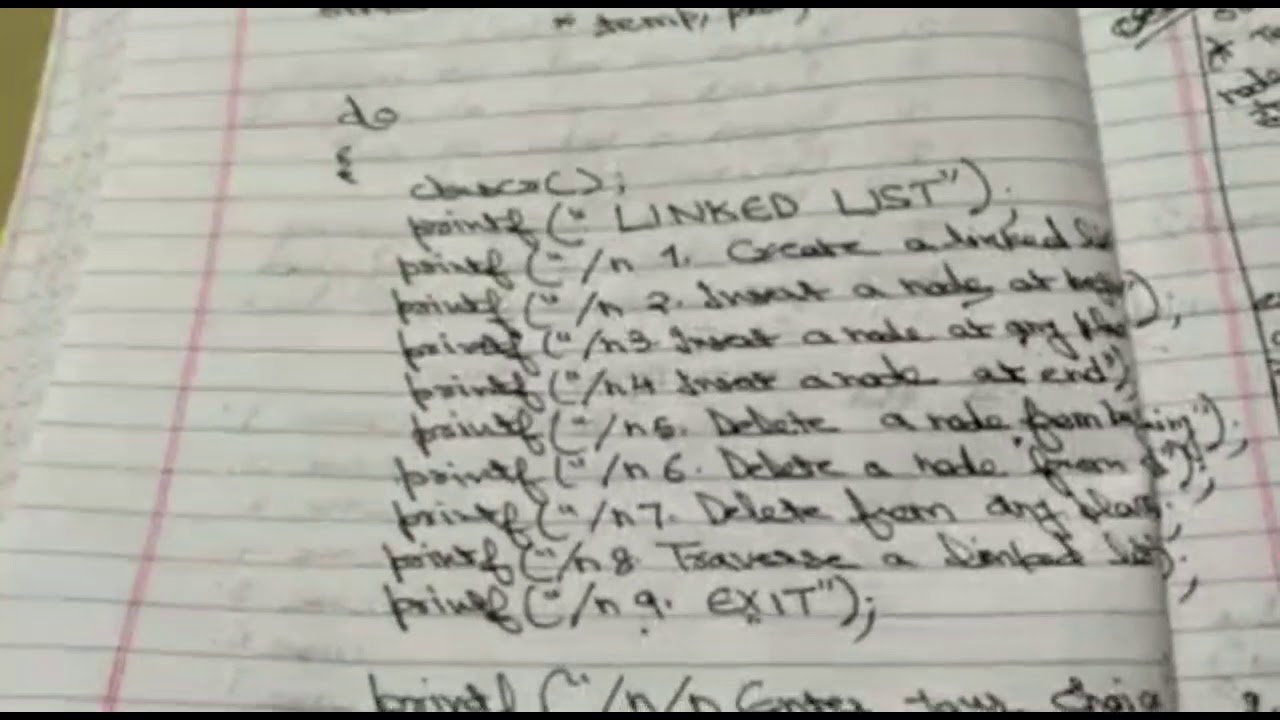 * temp,
do
{
clrscr();
printf (" LINKED LIST");
printf ("/n 1. Create a linked
printf ("/n 2. Insert a node at );
printf ("/n3. Insert a node at any
printf ("/n4 Insert a node at end")
printf ("/n5. Delete a node from ");
printf ("/n 6. Delete a node from ");
printf ("/n7. Delete from any place
printf ("/n 8. Traverse a linked list
printf ("/n 9. EXIT");
printf ("/n/n Enter your